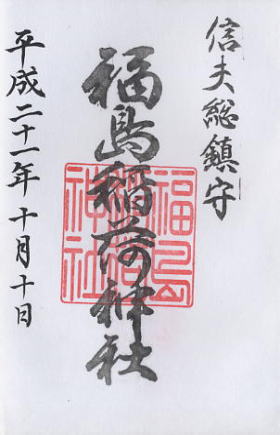 信夫総鎮守
福島稲荷神社
福島稲荷神社
平成二十一年十月十日